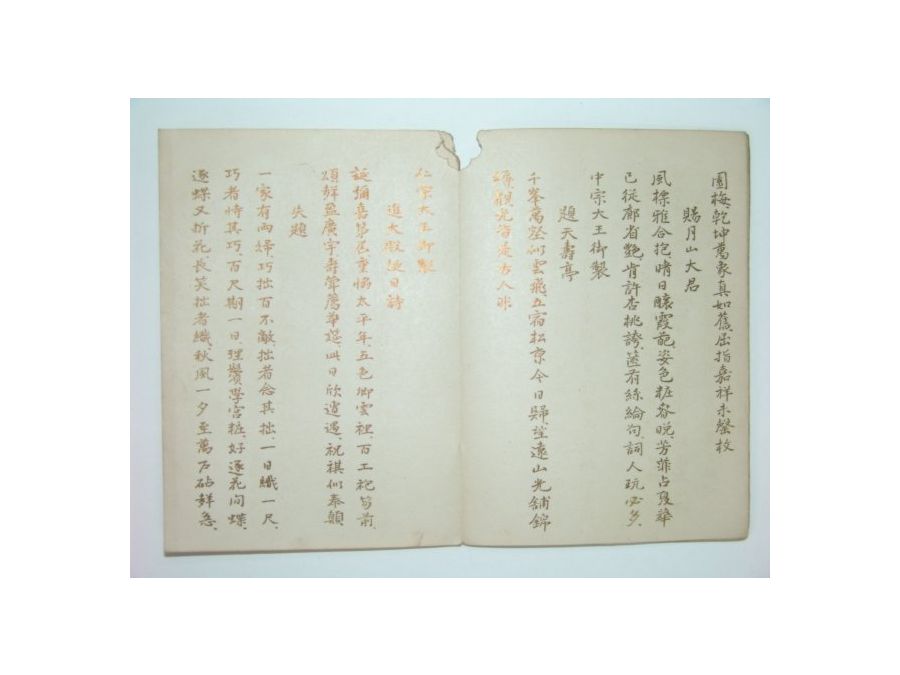 園梅、乾坤萬象真如舊、屈指嘉祥未罄枚
賜月山大君
風標雅合抱晴日、釀霞葩、姿色粧容晩、芳菲占夏華
已從廊省艶、肯許杏桃誇、篋有絲綸句、詞人玩必多、
中宗大王御製
題天壽亭
千峯萬壑似雲飛、五宿松京今日歸、望遠山光鋪錦
觀光皆是古人非
仁宗大王御製
進大殿誕日詩
誕彌嘉節屆、重愓太平年、五色卿雲裡、百工祀筍前、
頌鮮盈廣宇、壽筆萬華筵、此日欣遭遇、祝祺似奉顛
失題
一家有兩婦、巧拙百不敵、拙者念其拙、一日織一尺、
巧者恃其巧、百尺期一日、理鬢學宮粧、好逐花間蝶、
逐蝶又折花、長笑拙者織、秋風一夕至、萬戶砧鮮急、